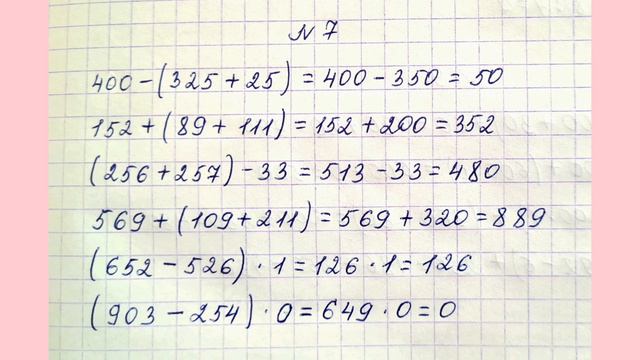 N 7
400 - (325 + 25) = 400 - 350 = 50
152 + (89 + 111) = 152 + 200 = 352
(256 + 257) - 33 = 513 - 33 = 480
569 + (109 + 211) = 569 + 320 = 889
(652 - 526) · 1 = 126 · 1 = 126
(903 - 254) · 0 = 649 · 0 = 0